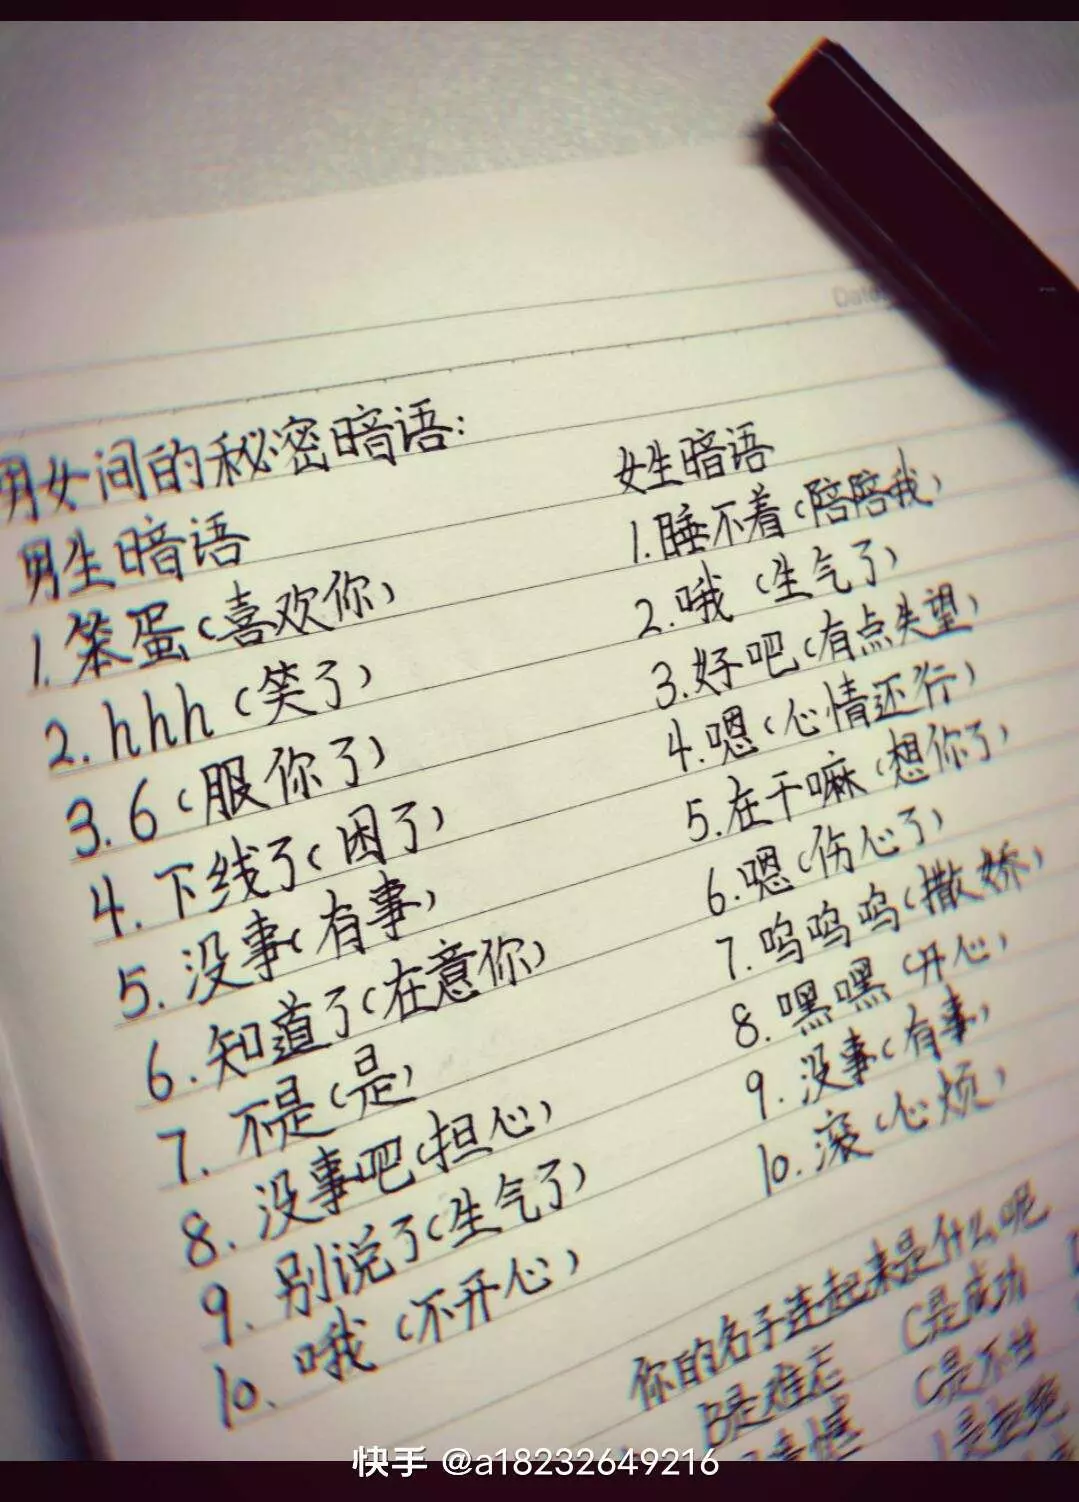 男女间的秘密暗语:
男生暗语
1.笨蛋(喜欢你)
2.hhh(笑了)
3.6(服你了)
4.下线了(困了)
5.没事(有事)
6.知道了(在意你)
7.不是(是)
8.没事吧(担心)
9.别说了(生气了)
10.哦(不开心)
女生暗语
1.睡不着(陪陪我)
2.哦(生气了)
3.好吧(有点失望)
4.嗯(心情还行)
5.在干嘛(想你了)
6.嗯(伤心了)
7.呜呜呜(撒娇)
8.嘿嘿(开心)
9.没事(有事)
10.滚(心烦)
你的名子连起来是什么呢
B是难忘 C是成功
C是不甘
是拒绝
快手 @a18232649216